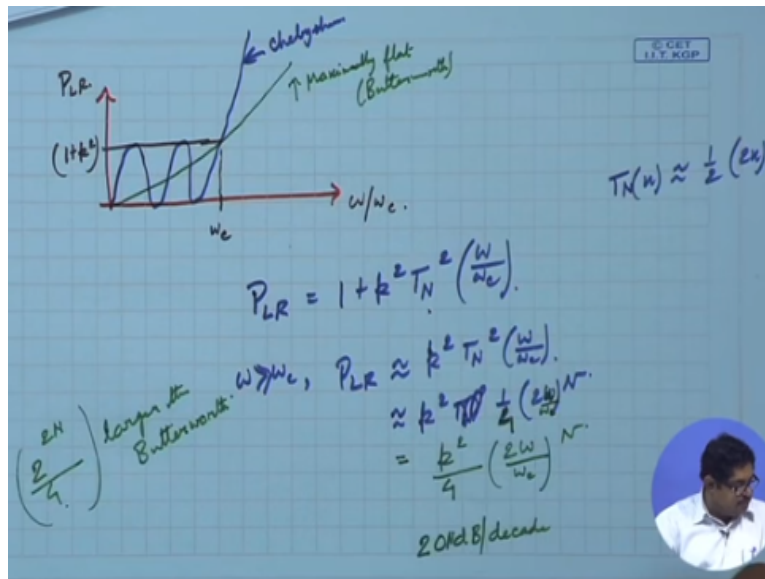 © CET
I.I.T. KGP
← Chebyshev
↑ Maximally flat
(Butterworth)
P_LR
(1+k²)
ω/ωc.
ωc
T_N(x) ≈ 1/2 (2x)
P_LR = 1 + k² T_N² (ω/ωc).
ω≫ωc, P_LR ≈ k² T_N² (ω/ωc).
≈ k² 1/4 (2ω/ωc)^N.
= k²/4 (2ω/ωc)^N.
(2^2N/4.) larger than
Butterworth.
20N dB/decade